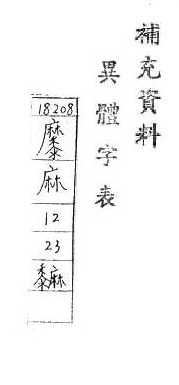 補充資料
異體字表
18208
𪎭
麻
12
23